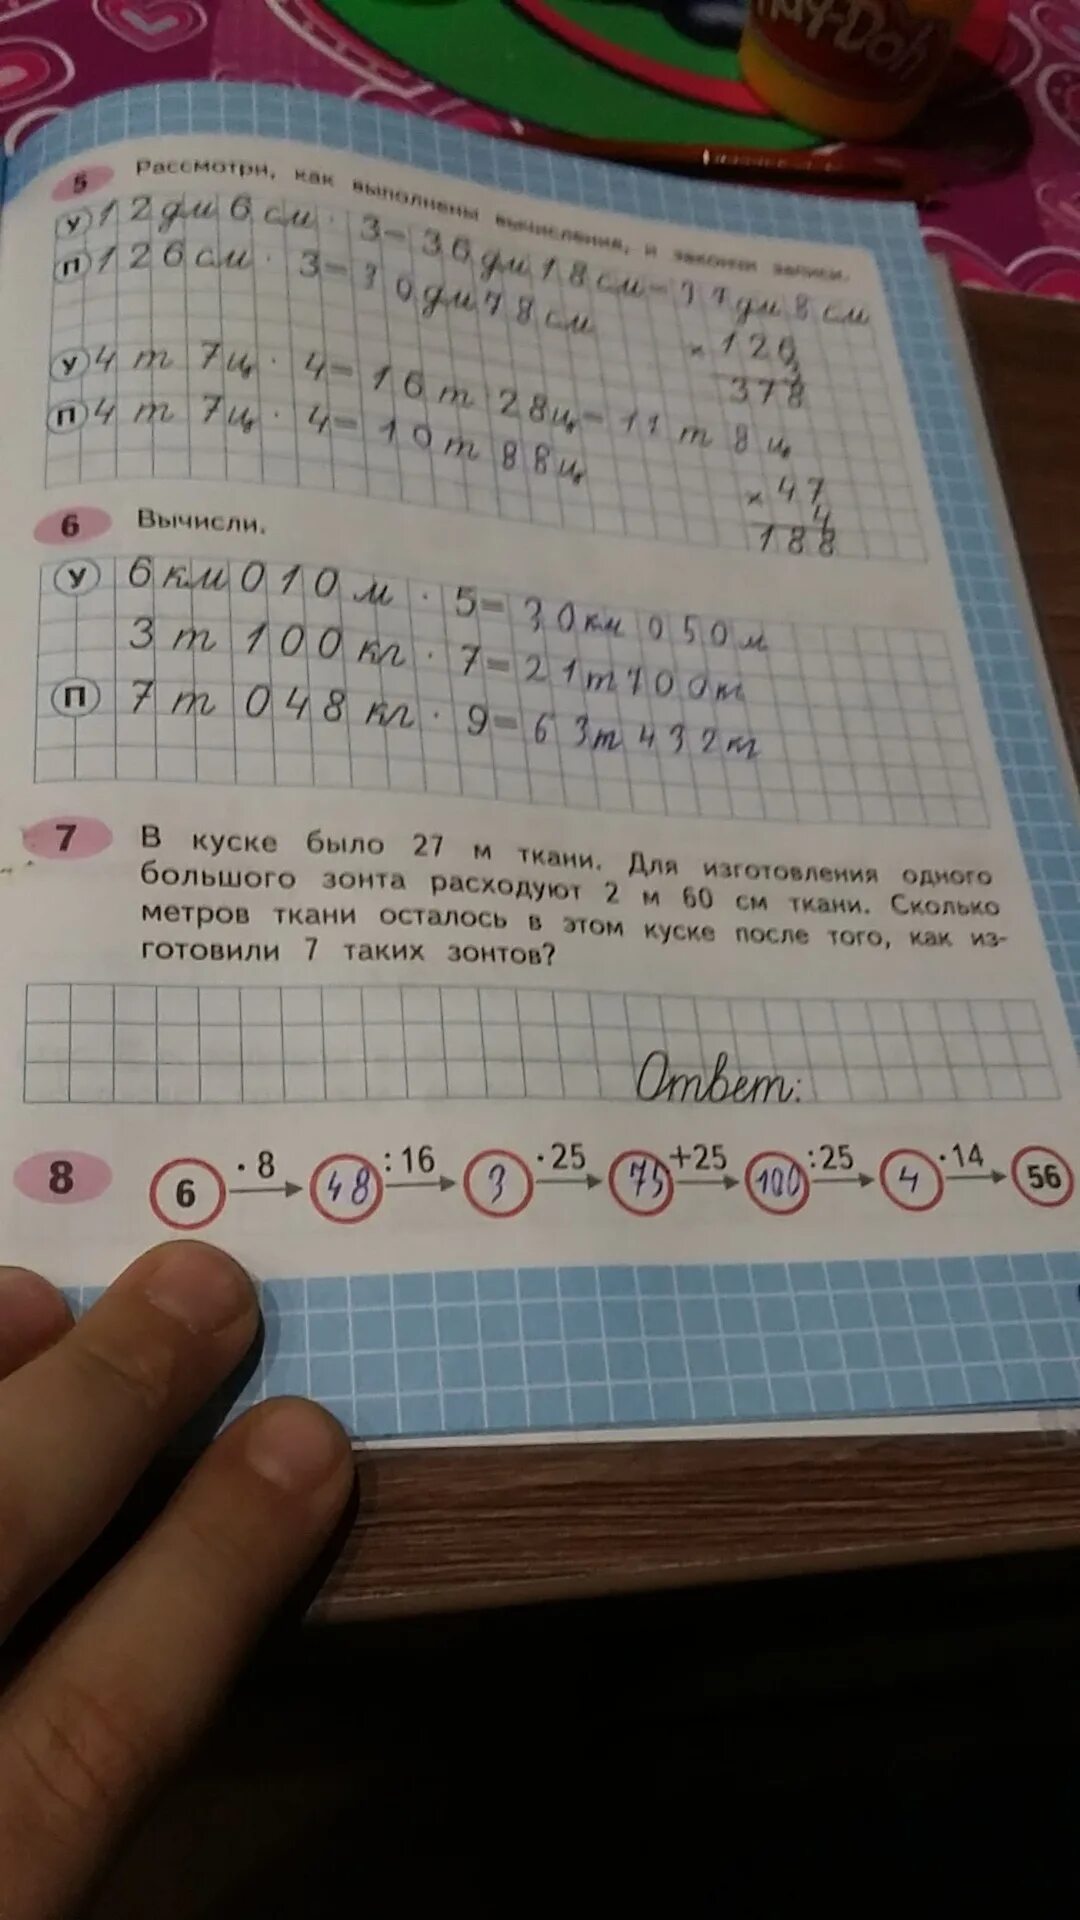 Play-Doh
5 Рассмотри, как выполнены вычисления, и закончи записи.
У 12 дм 6 см · 3 = 36 дм 18 см = 37 дм 8 см
П 126 см · 3 = 30 дм 78 см
× 126
3
378
У 4 т 7 ц · 4 = 16 т 28 ц = 11 т 8 ц
П 4 т 7 ц · 4 = 10 т 88 ц
× 47
4
188
6 Вычисли.
У 6 км 010 м · 5 = 30 км 050 м
3 т 100 кг · 7 = 21 т 700 кг
П 7 т 048 кг · 9 = 63 т 432 кг
7 В куске было 27 м ткани. Для изготовления одного
большого зонта расходуют 2 м 60 см ткани. Сколько
метров ткани осталось в этом куске после того, как из-
готовили 7 таких зонтов?
Ответ:
8 6 ·8 48 :16 3 ·25 75 +25 100 :25 4 ·14 56